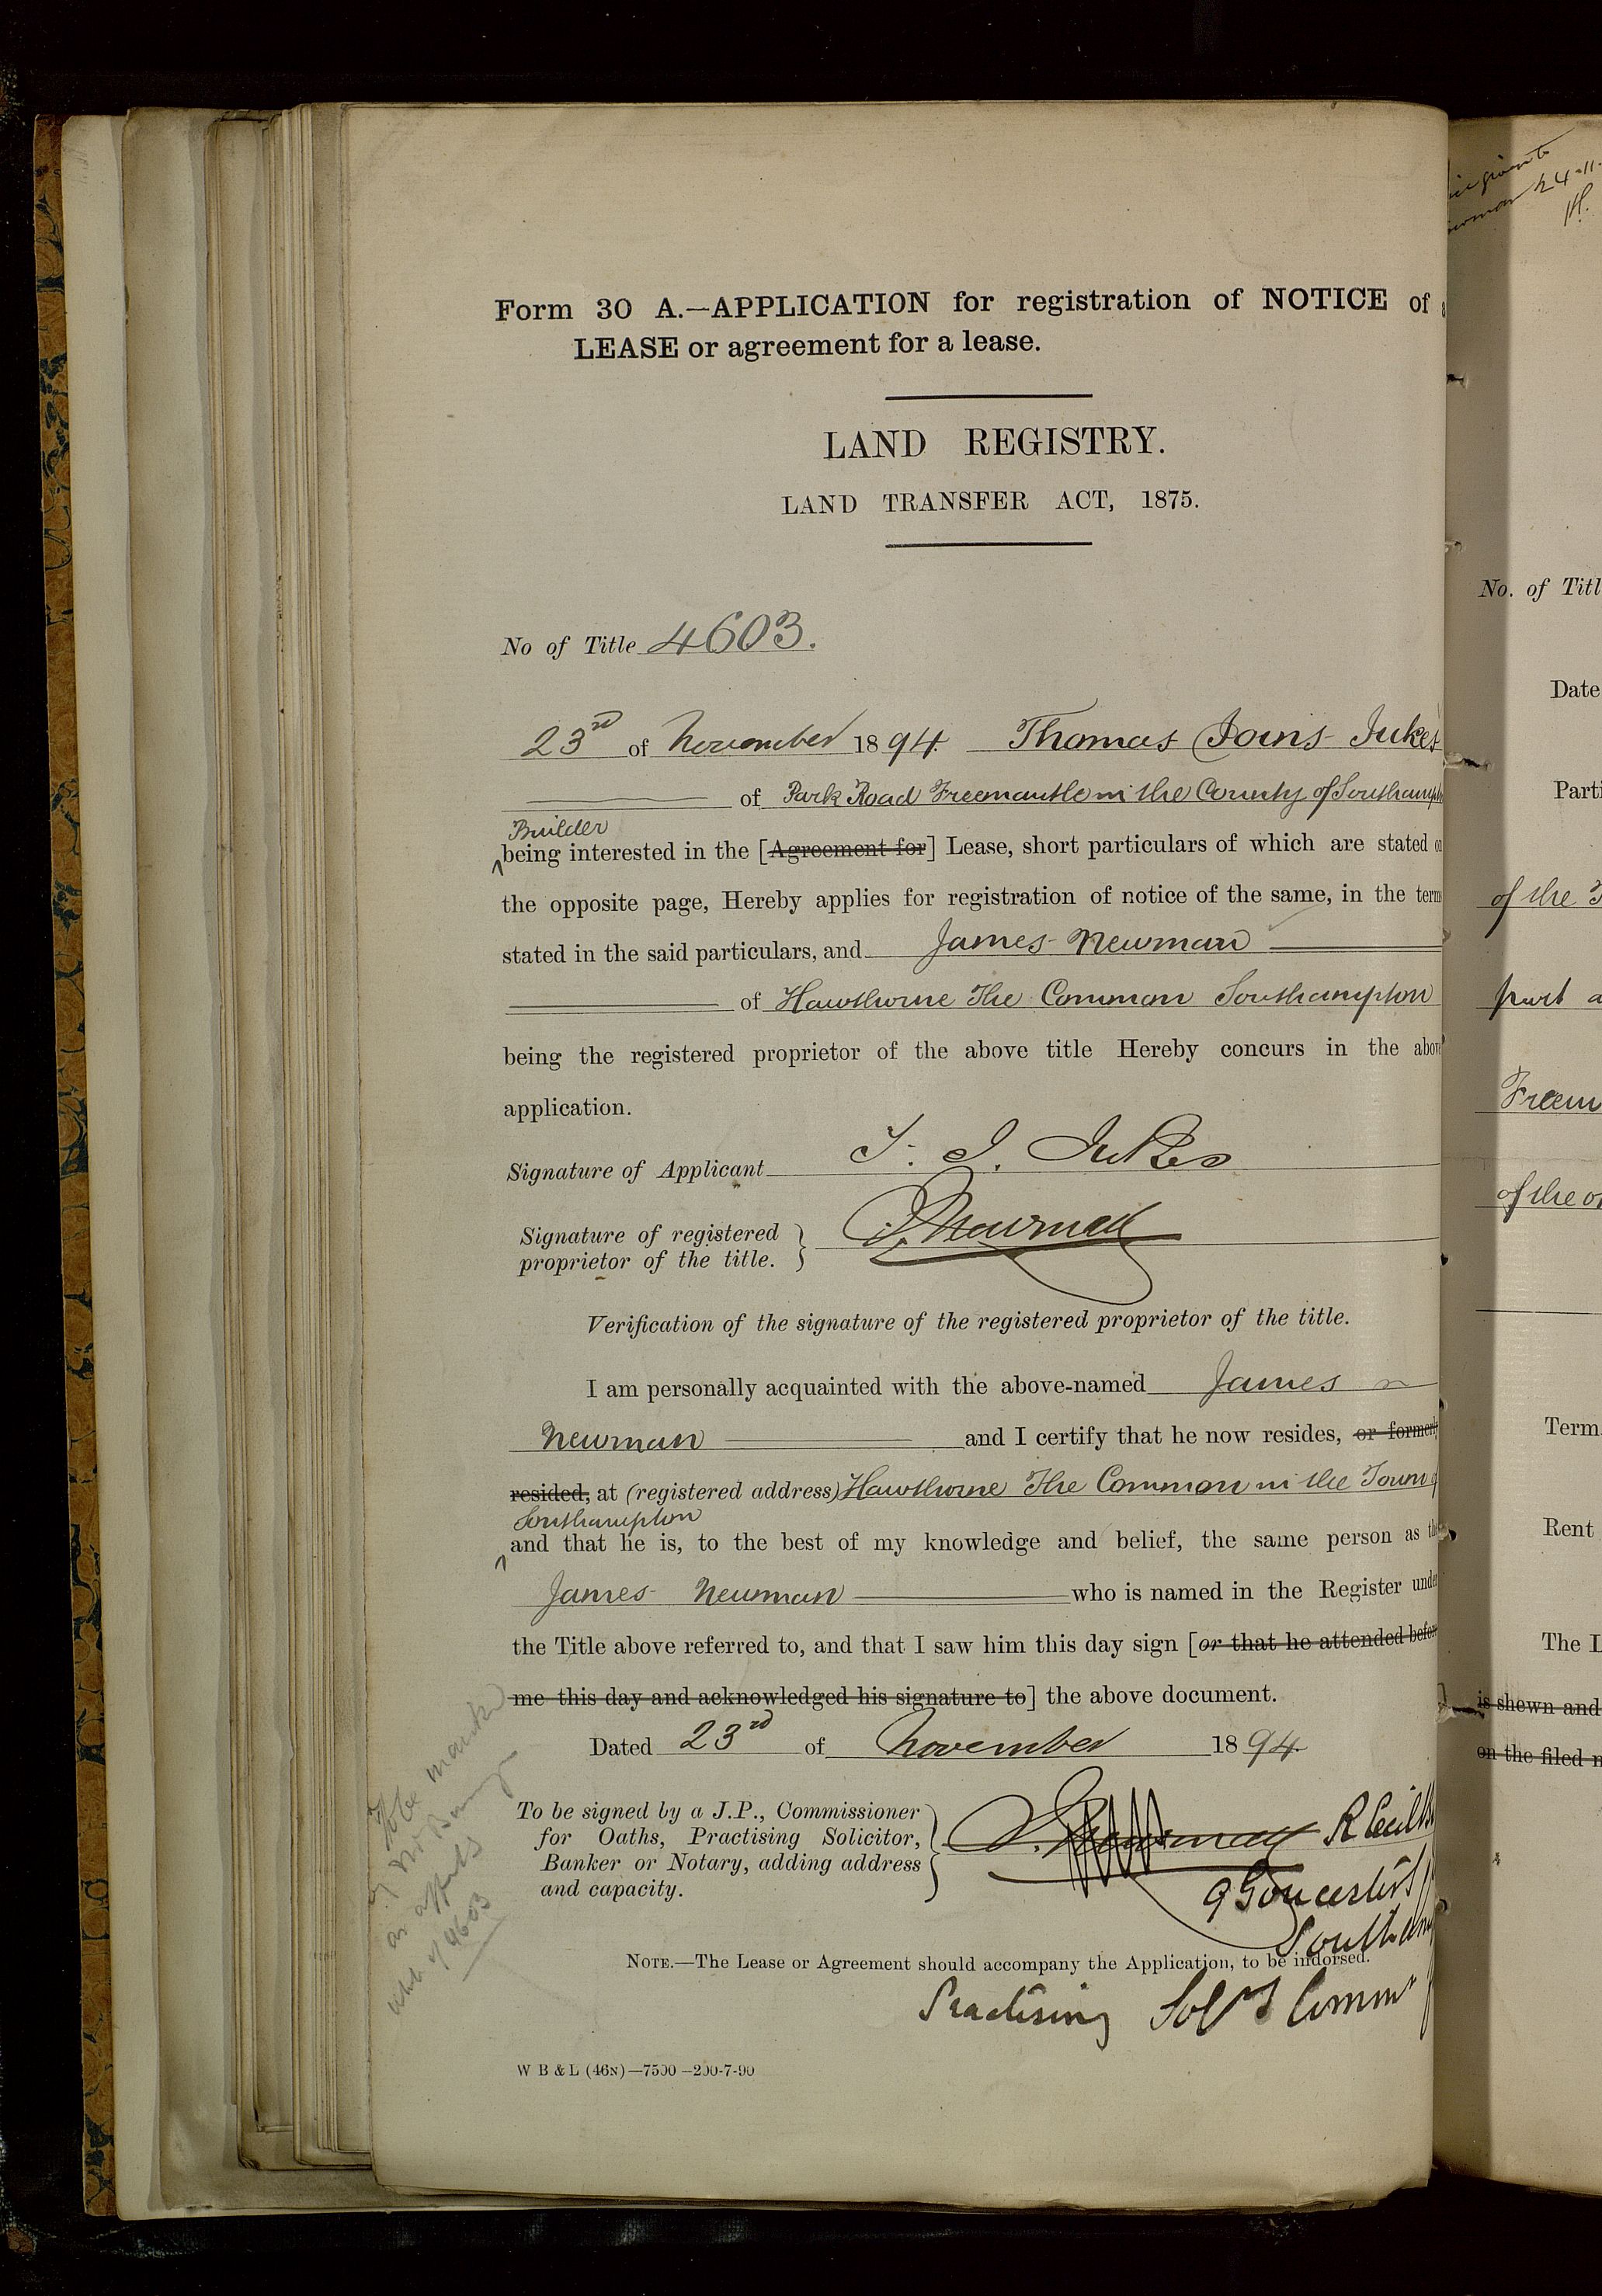 Form 30 A.—APPLICATION for registration of NOTICE of
LEASE or agreement for a lease.
LAND REGISTRY.
LAND TRANSFER ACT, 1875.
No of Title 4603.
23rd of November 1894. Thomas Joins Jukes
of Park Road Freemantle in the County of Southampt
Builder
^being interested in the [Agreement for] Lease, short particulars of which are stated on
the opposite page, Hereby applies for registration of notice of the same, in the term
stated in the said particulars, and James Newman
of Hawthorne The Common Southampton
being the registered proprietor of the above title Hereby concurs in the above
application.
Signature of Applicant T. J. Jukes
Signature of registered
proprietor of the title. } J. Newman
Verification of the signature of the registered proprietor of the title.
I am personally acquainted with the above-named James
Newman and I certify that he now resides, or formerly
resided, at (registered address) Hawthorne The Common in the Town of
Southampton
^and that he is, to the best of my knowledge and belief, the same person as the
James Newman who is named in the Register under
the Title above referred to, and that I saw him this day sign [or that he attended before
me this day and acknowledged his signature to] the above document.
Dated 23rd of November 1894.
To be signed by a J.P., Commissioner
for Oaths, Practising Solicitor,
Banker or Notary, adding address
and capacity.
J. Newman R Cecil
9 Goucester
Southam
NOTE.—The Lease or Agreement should accompany the Application, to be indorsed.
Practising Solr & Commr
W B & L (46N)—7500—200-7-90
To be marked
by Mr
as appts
4603
24-11
H.
No. of Titl
Date
Parti
of the
part a
Freem
of the o
Term
Rent
The L
is shewn and
on the filed